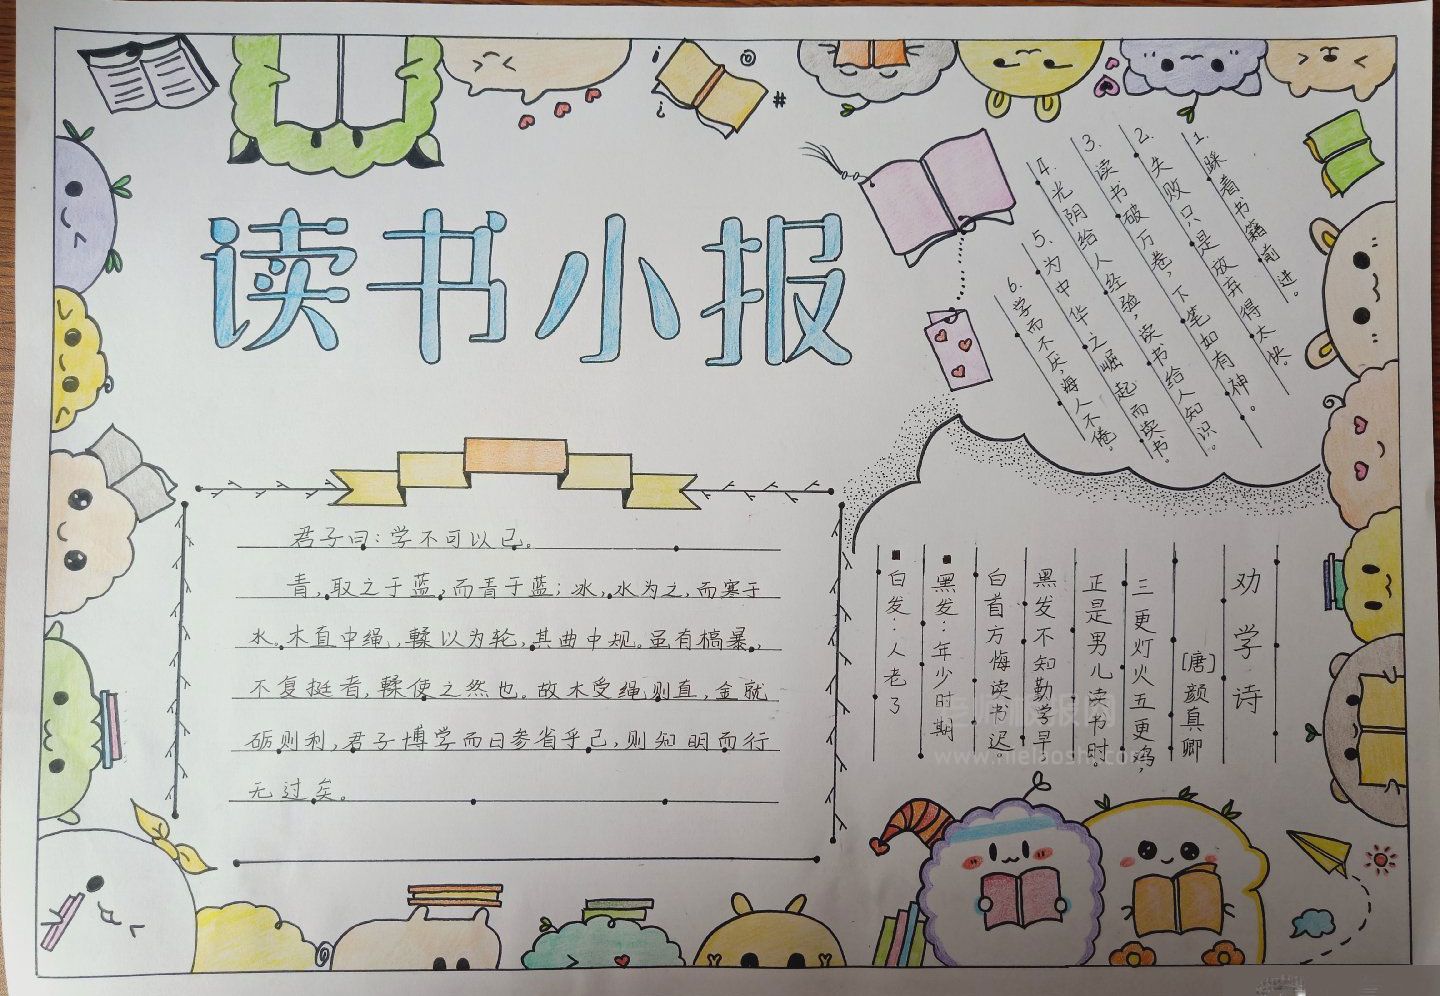 读书小报
1. 踩着书籍前进。
2. 失败只是放弃得太快。
3. 读书破万卷，下笔如有神。
4. 光阴给人经验，读书给人知识。
5. 为中华之崛起而读书。
6. 学而不厌，诲人不倦。
君子曰：学不可以已。
青，取之于蓝，而青于蓝；冰，水为之，而寒于
水。木直中绳，輮以为轮，其曲中规。虽有槁暴，
不复挺者，輮使之然也。故木受绳则直，金就
砺则利，君子博学而日参省乎己，则知明而行
无过矣。
劝学诗
[唐]颜真卿
三更灯火五更鸡，
正是男儿读书时。
黑发不知勤学早，
白首方悔读书迟。
黑发：年少时期
白发：人老了